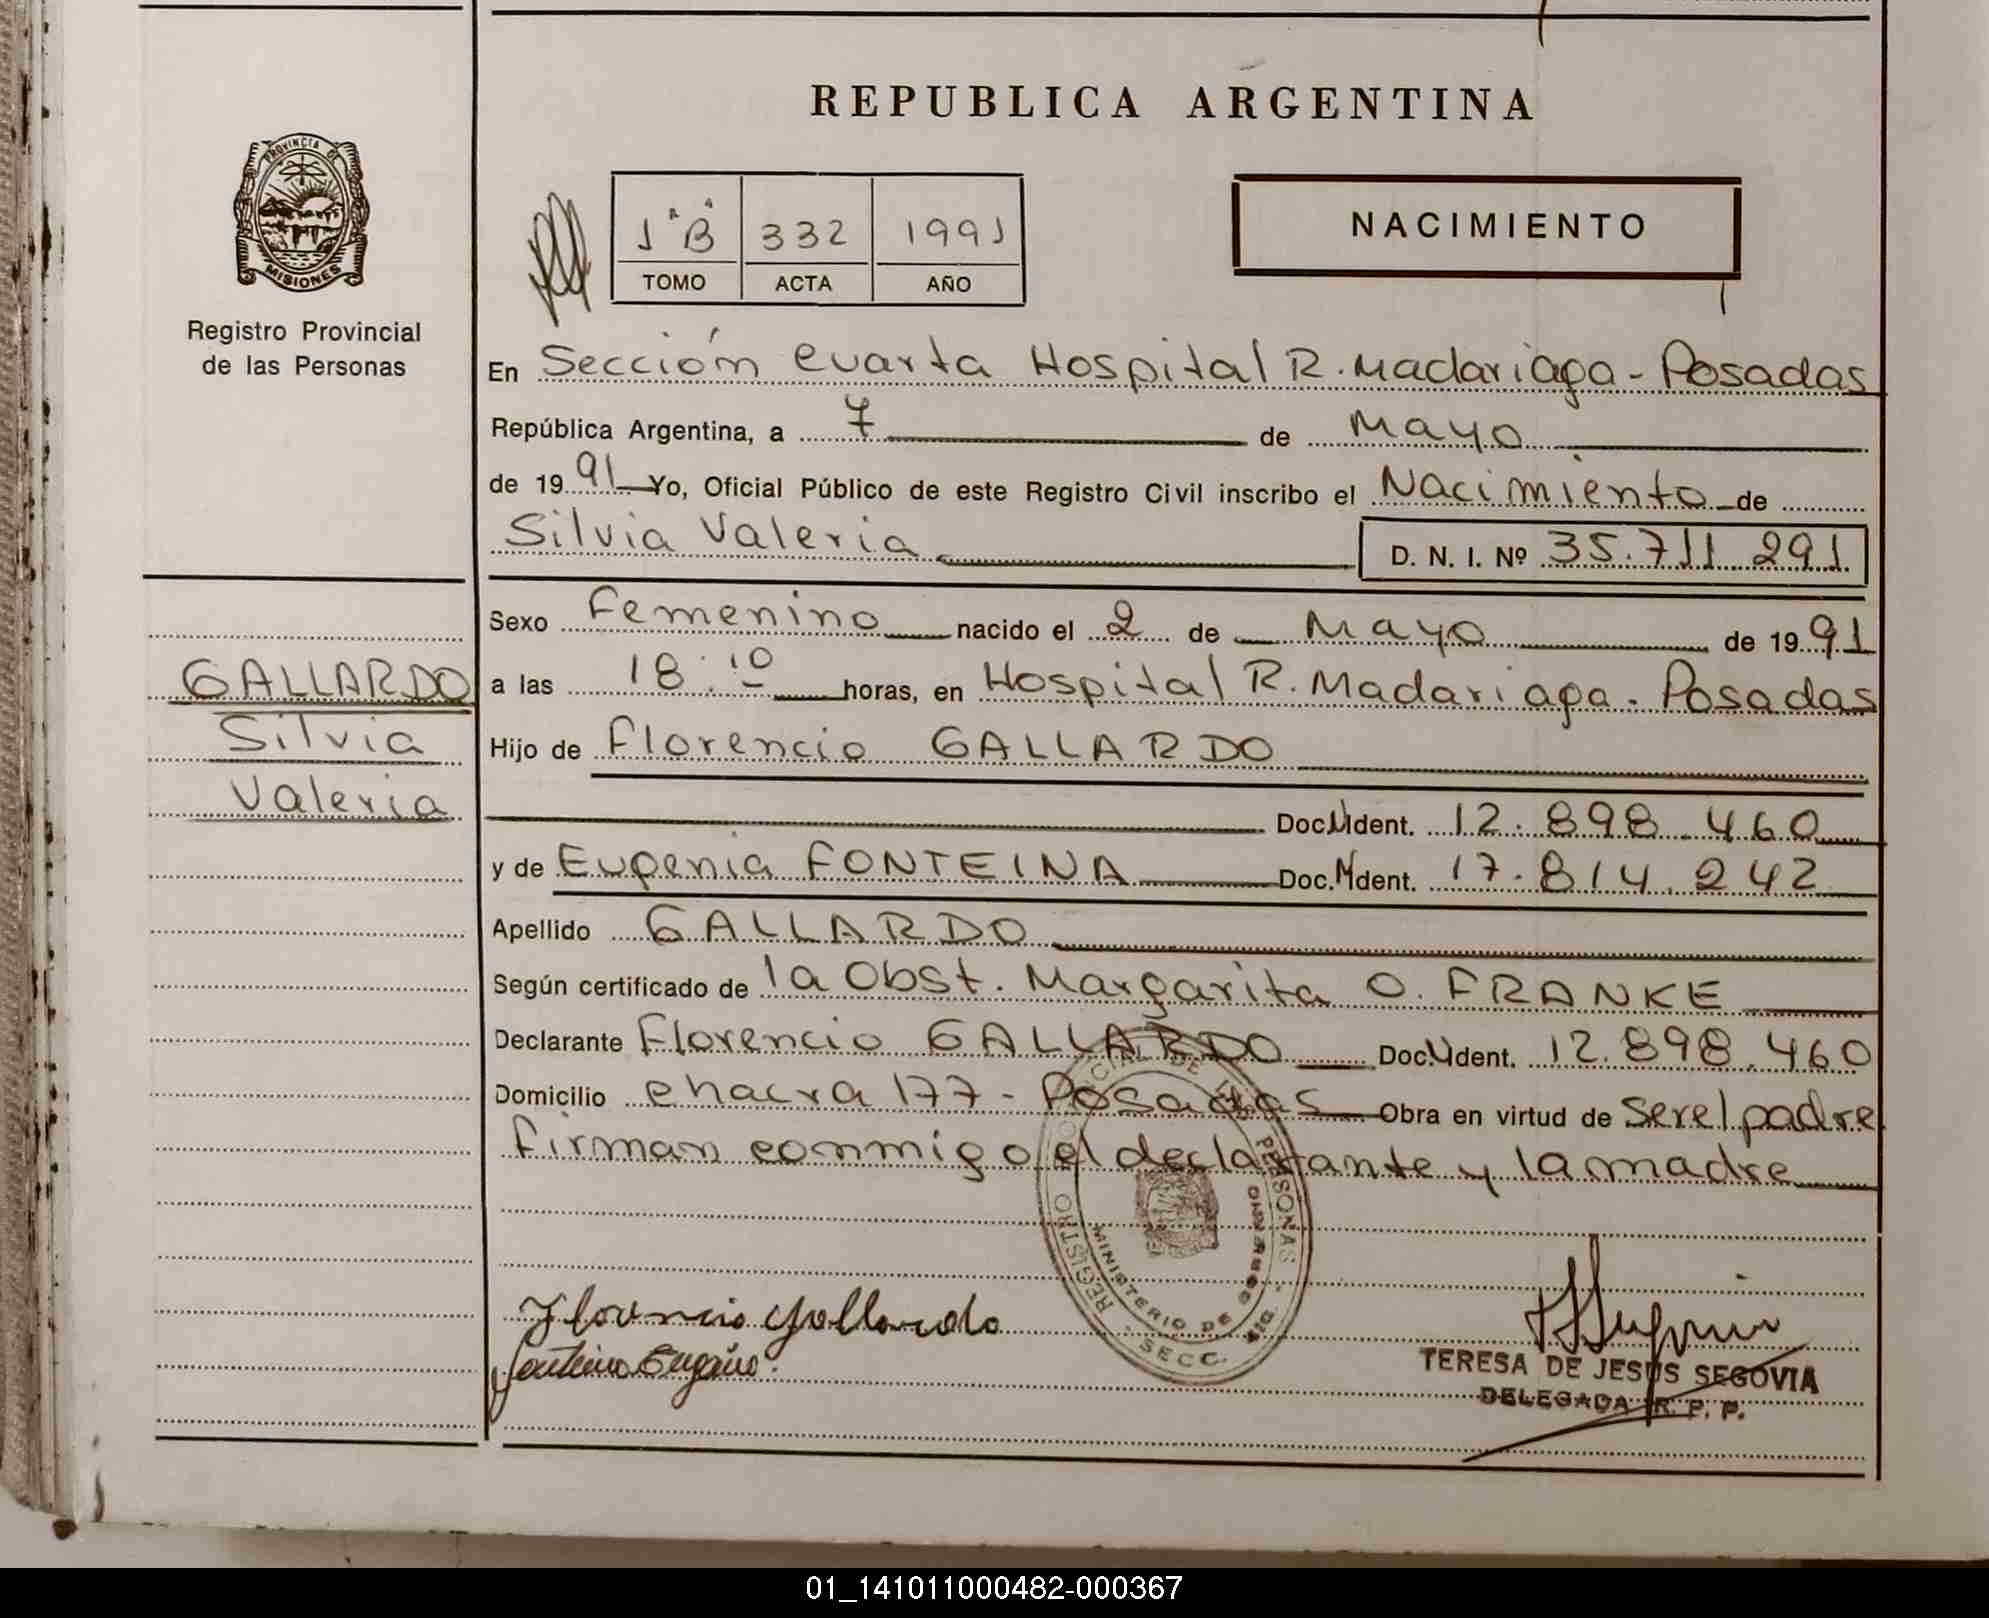 REPUBLICA ARGENTINA
PROVINCIA DE
MISIONES
Registro Provincial
de las Personas
1ª Bª 332 1991
TOMO ACTA AÑO
NACIMIENTO
En Sección Cuarta Hospital R. Madariaga - Posadas
República Argentina, a 7 de Mayo
de 1991 Yo, Oficial Público de este Registro Civil inscribo el Nacimiento de
Silvia Valeria D. N. I. Nº 35.711.291
Sexo Femenino nacido el 2 de Mayo de 1991
GALLARDO
Silvia
Valeria
a las 18:10 horas, en Hospital R. Madariaga - Posadas
Hijo de Florencio GALLARDO
Doc. Ident. 12.898.460
y de Eugenia FONTEINA Doc. Ident. 17.814.242
Apellido GALLARDO
Según certificado de la Obst. Margarita O. FRANKE
Declarante Florencio GALLARDO Doc. Ident. 12.898.460
Domicilio chacra 177 - Posadas Obra en virtud de ser el padre
firman conmigo el declarante y la madre
REGISTRO DE LAS PERSONAS
MINISTERIO DE GOBIERNO
SECC.
Florencio Gallardo
Fonteina Eugenia
TERESA DE JESUS SEGOVIA
DELEGADA R. P. P.
01_141011000482-000367